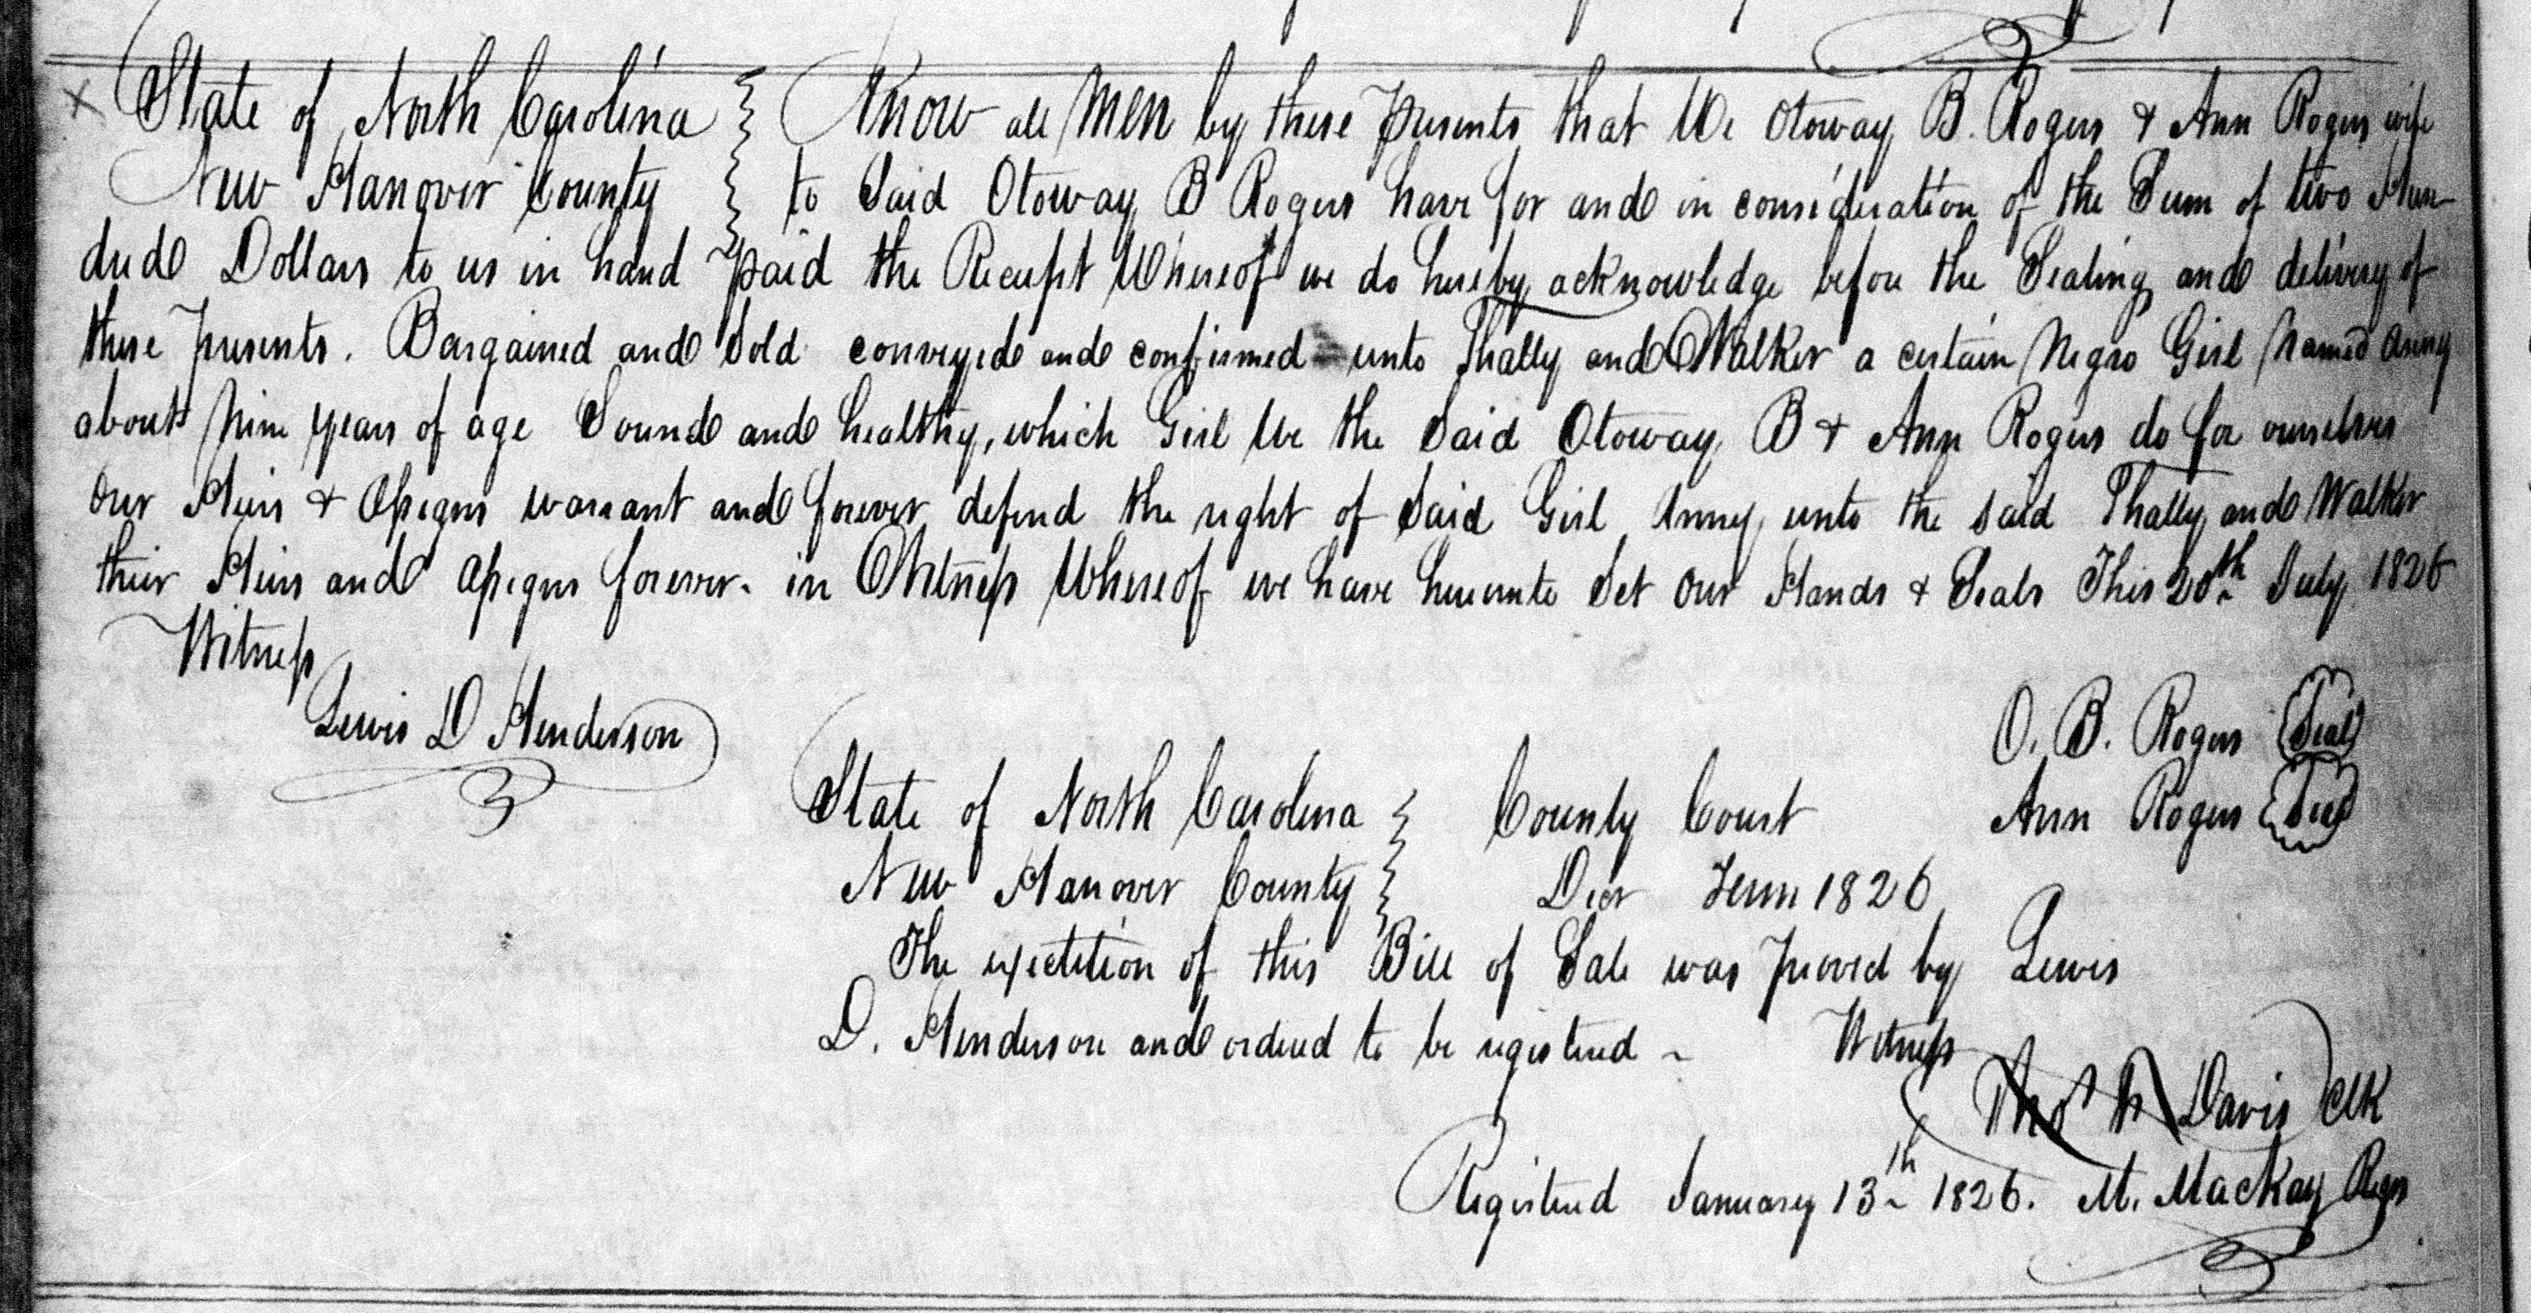 State of North Carolina } Know all Men by these presents that We Otoway B. Rogers & Ann Rogers wife
New Hanover County } to Said Otoway B Rogers have for and in consideration of the Sum of two Hun-
dred Dollars to us in hand paid the Receipt Whereof we do hereby acknowledge before the Sealing and delivery of
these presents. Bargained and Sold conveyed and confirmed unto Thally and Walker a certain Negro Girl Named Anny
about Nine years of age Sound and healthy, which Girl We the Said Otoway B & Ann Rogers do for ourselves
our Heirs & Assigns warrant and forever defend the right of Said Girl Anny unto the said Thally and Walker
their Heirs and Assigns forever. in Witness Whereof we have hereunto Set our Hands & Seals This 20th July 1826
Witness
Lewis D Henderson
O. B. Rogers (Seal)
Ann Rogers (Seal)
State of North Carolina } County Court
New Hanover County } Decr Term 1826
The exection of this Bill of Sale was proved by Lewis
D. Henderson and ordered to be registered ~ Witness
Thos Davis Clk
Registered January 13th 1826. M. Mackay Regr